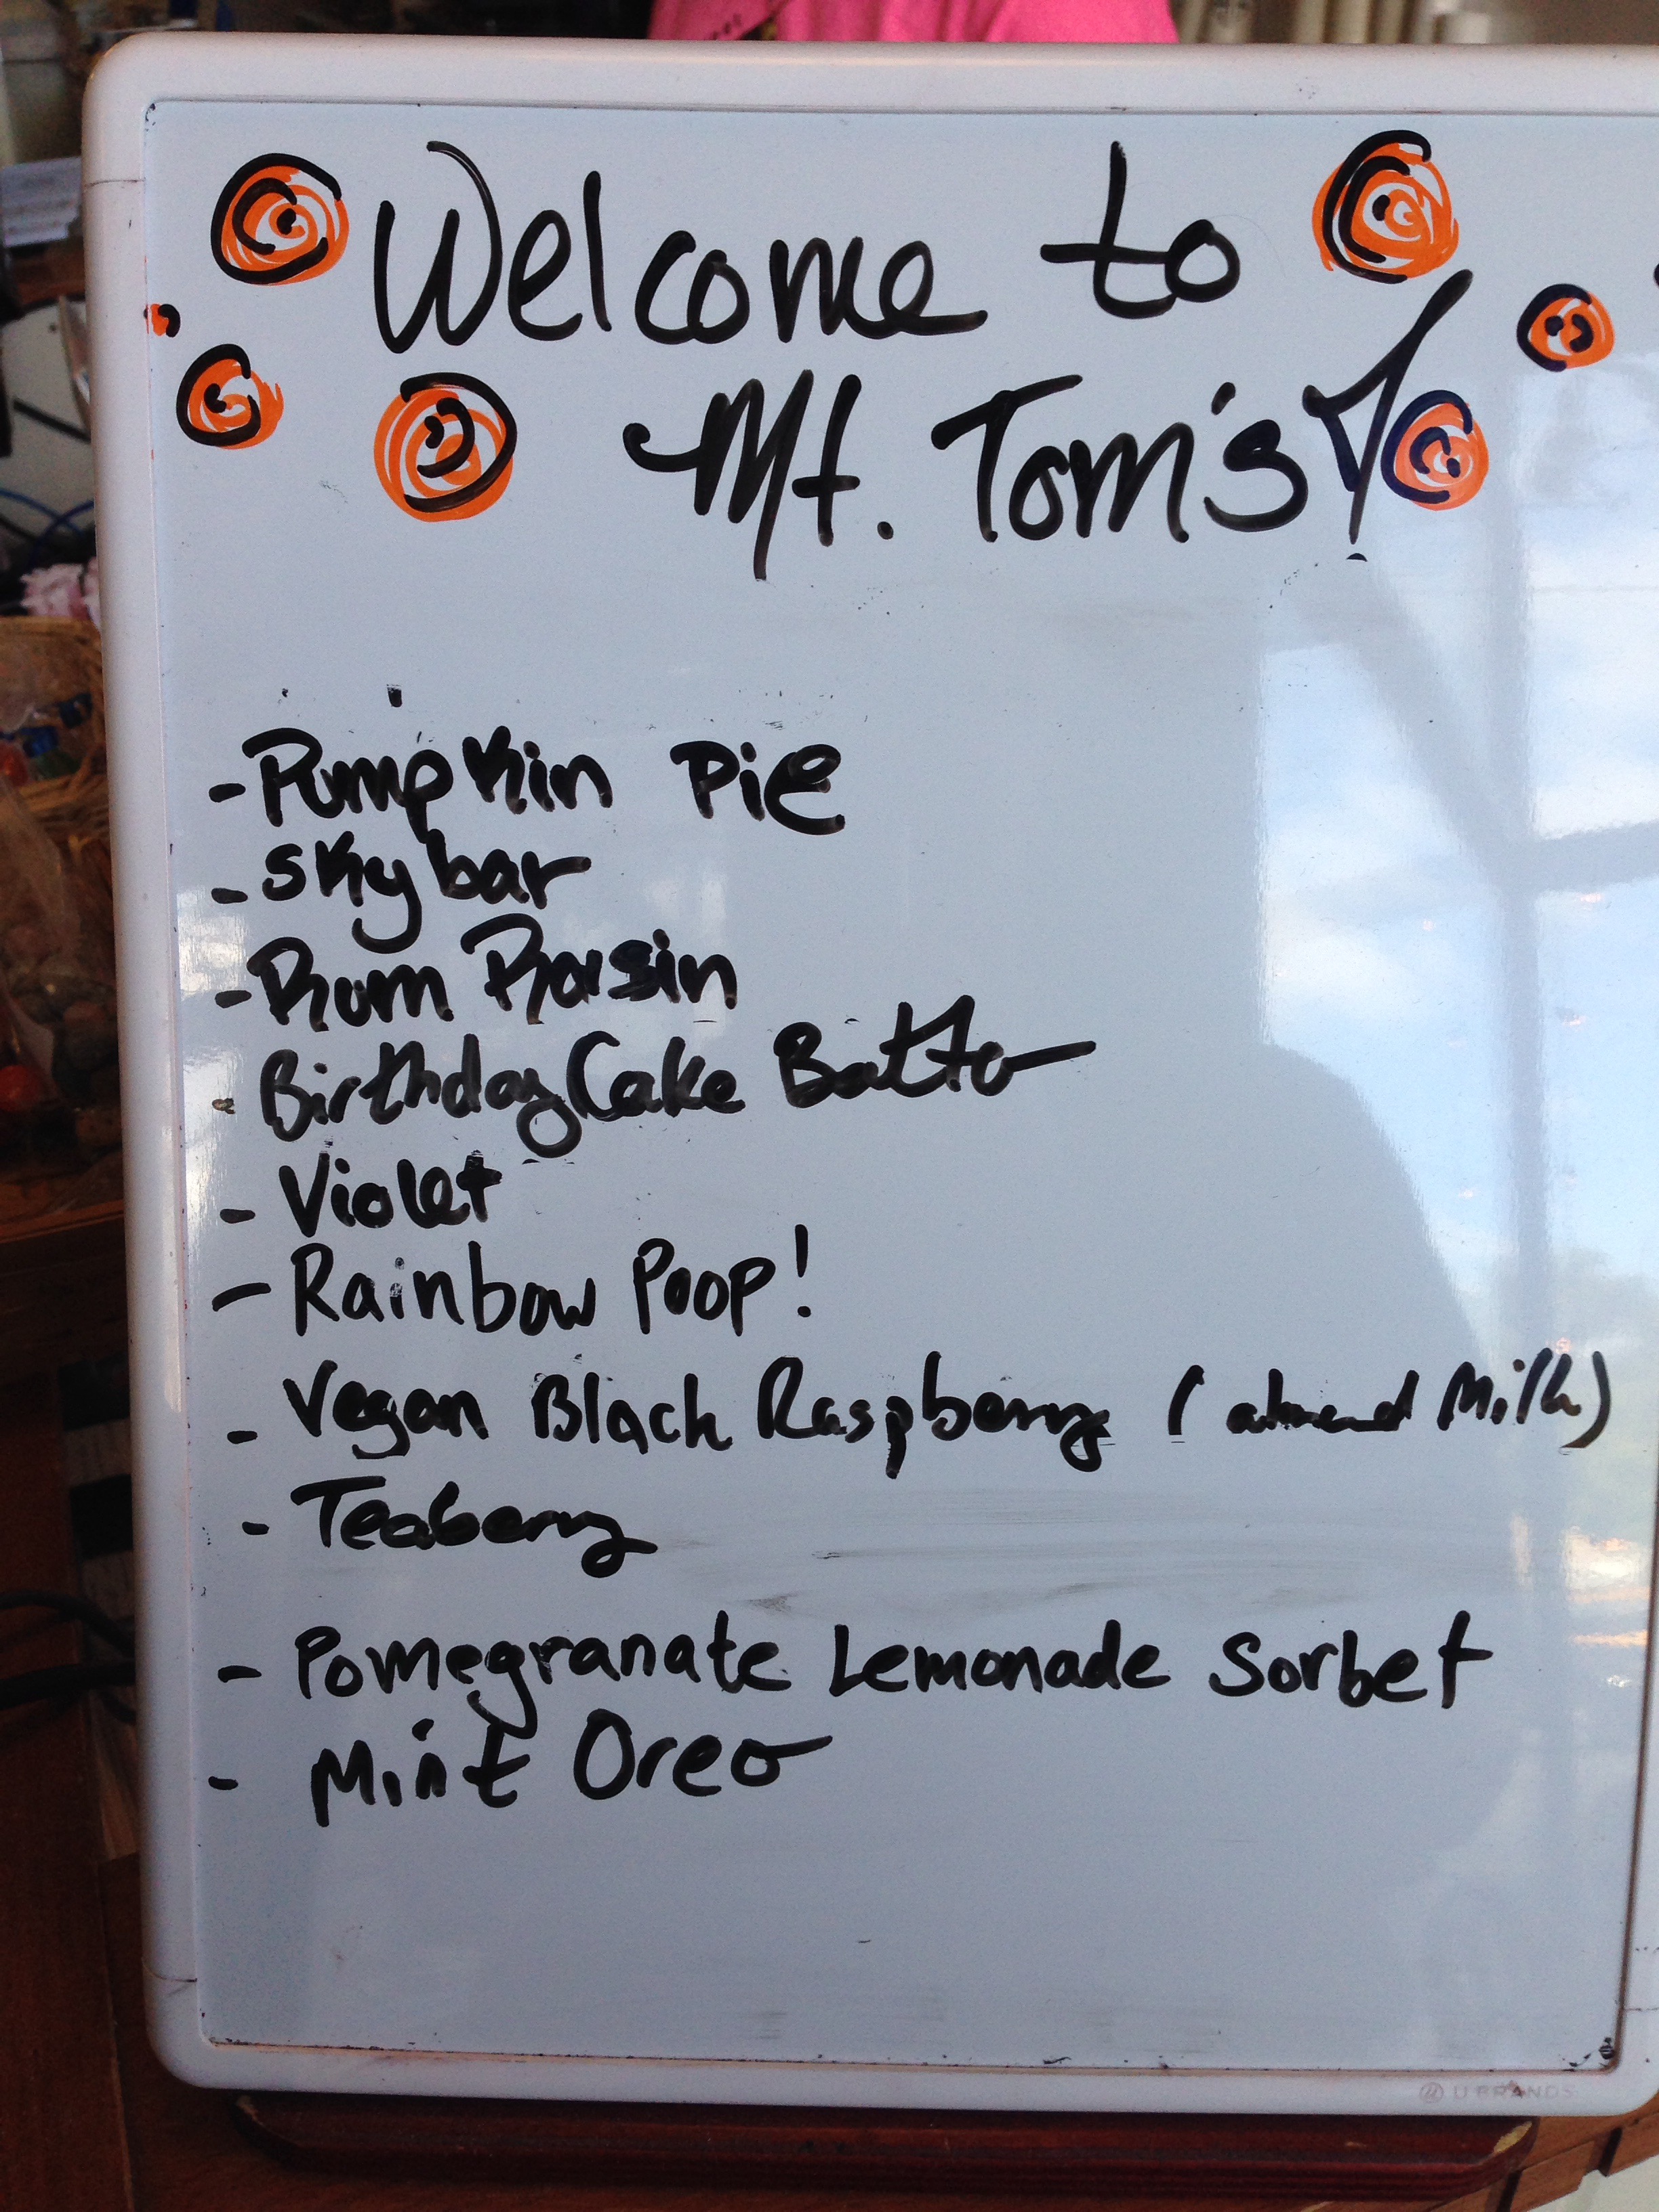 Welcome to
Mt. Tom's!
- Pumpkin Pie
- Sky bar
- Rum Raisin
- Birthday Cake Batter
- Violet
- Rainbow Poop!
- Vegan Black Raspberry (almond Milk)
- Teaberry
- Pomegranate Lemonade Sorbet
- Mint Oreo
U BRANDS